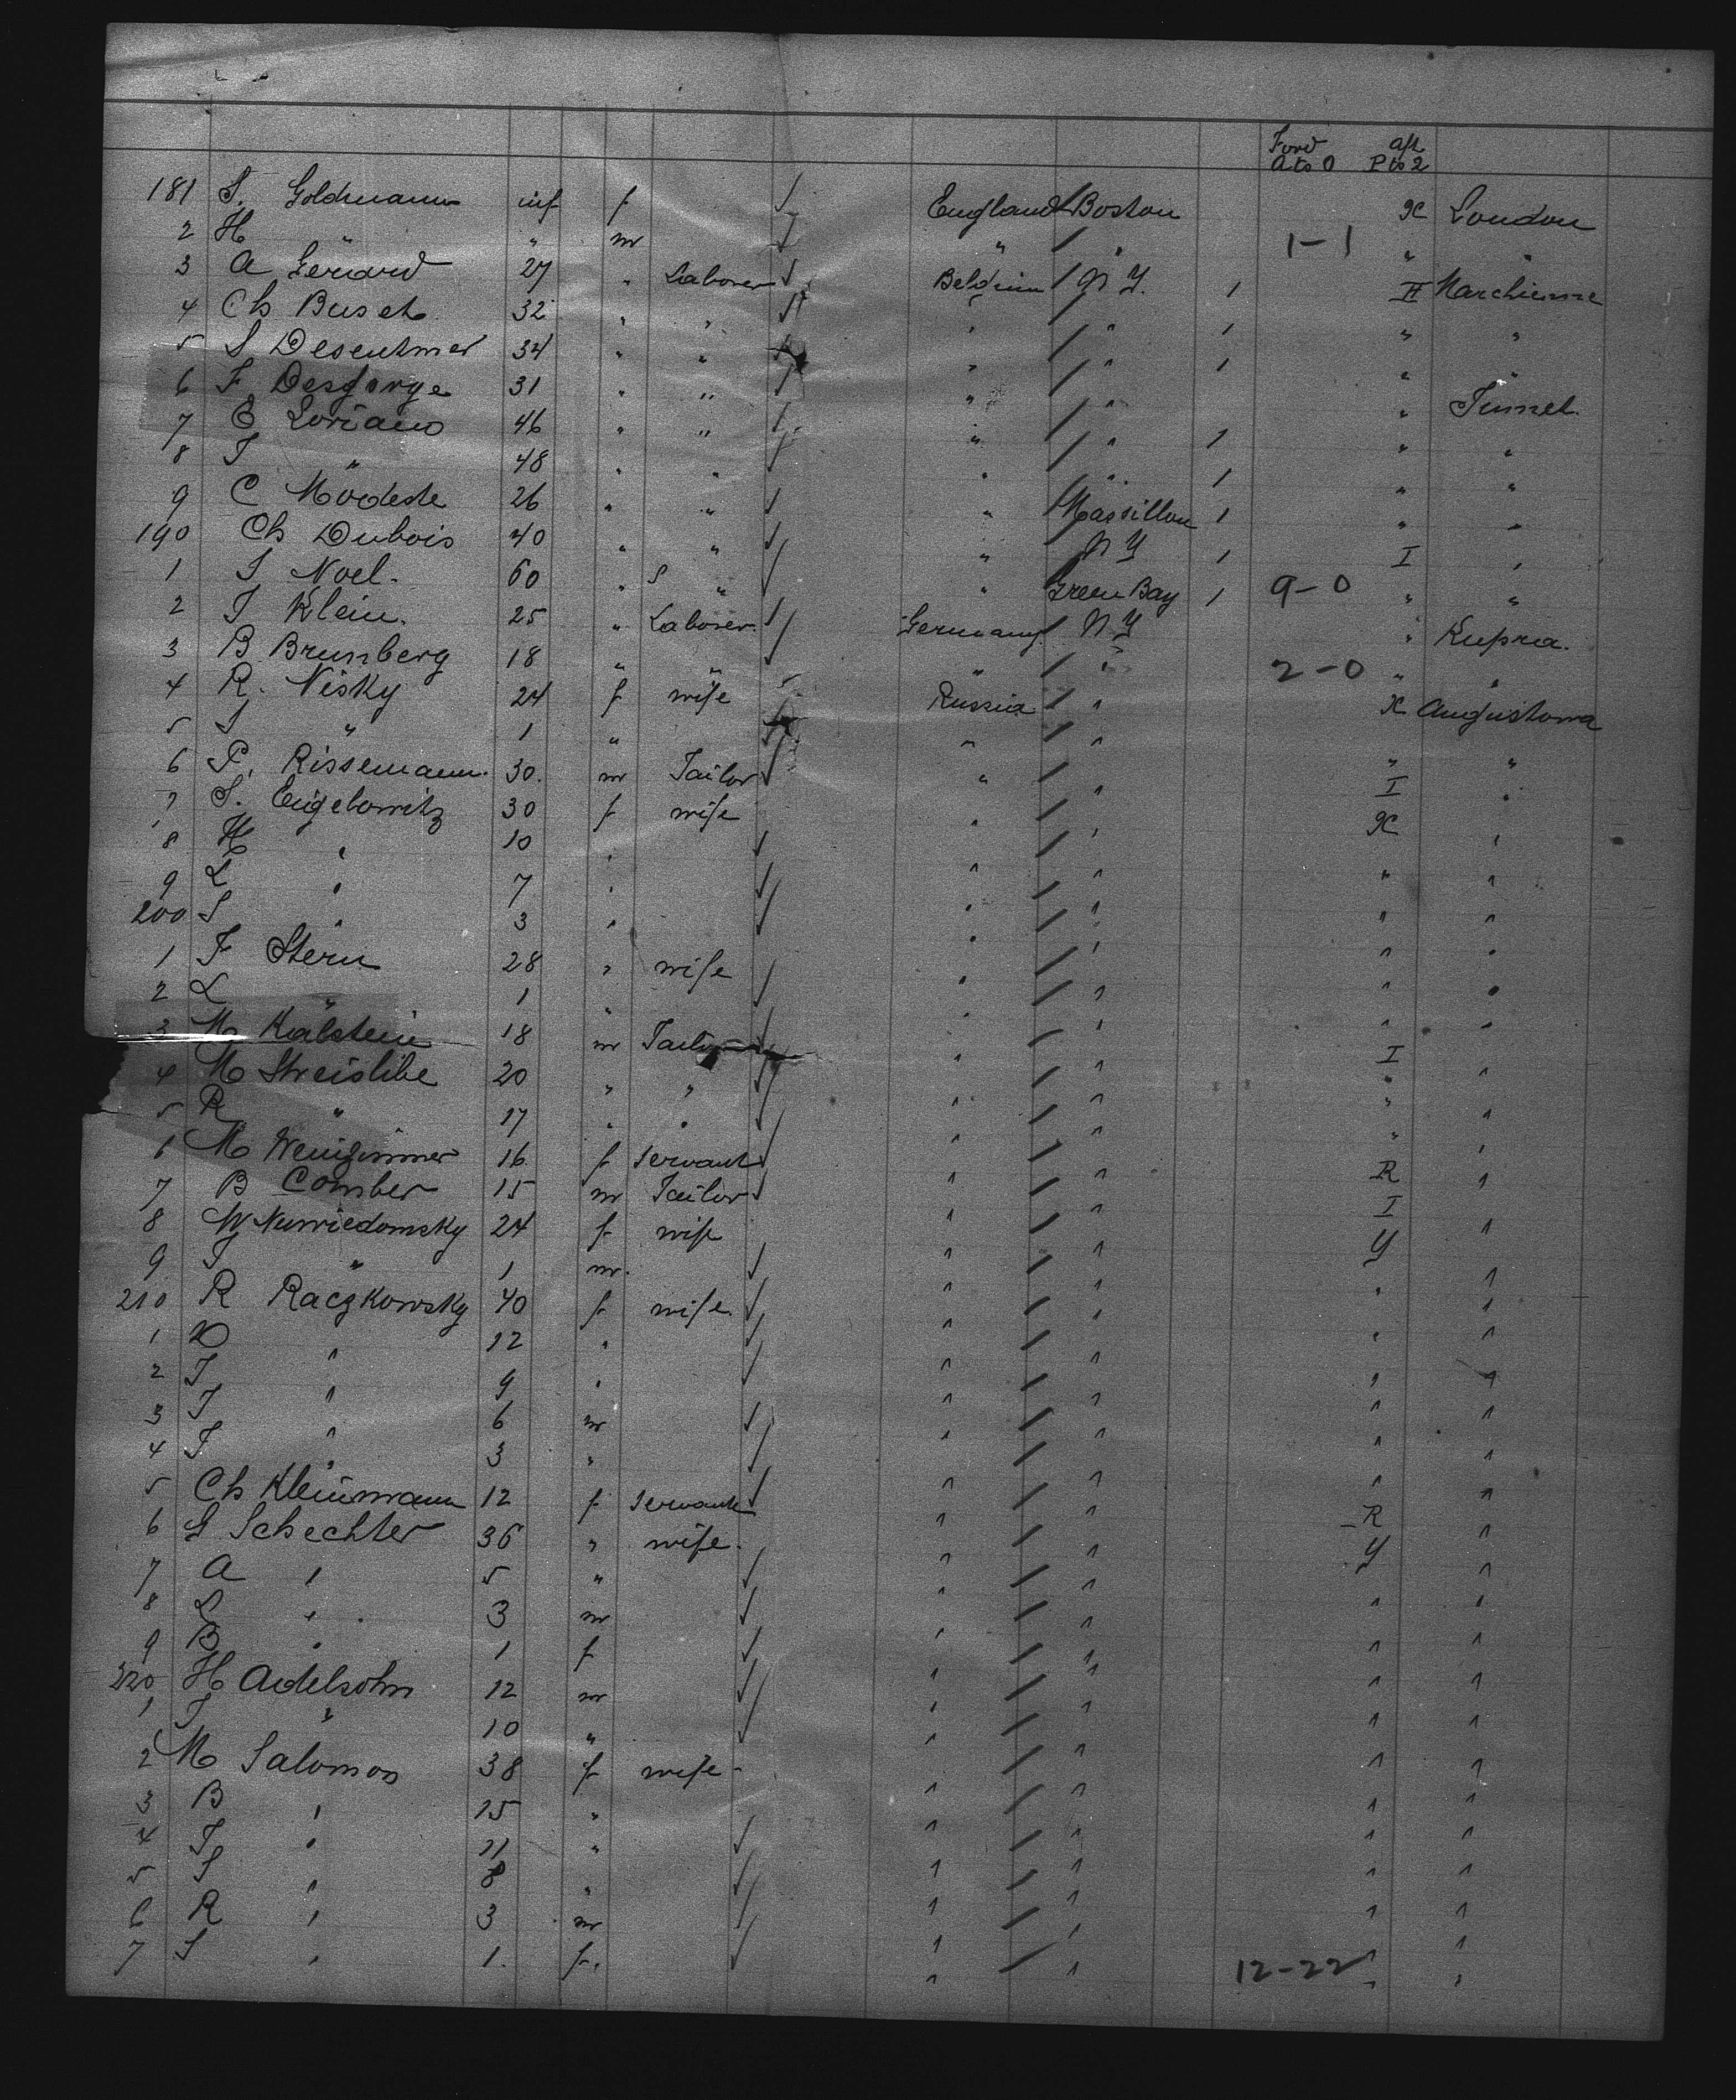 Ford aft
A to O P to 2
181 S. Goldmann inf f England Boston K London
2 H " " m " " 1-1 " "
3 A Gerard 27 " Laborer Belgium N Y. 1 II Marchienne
4 Ch Buset 32 " " " " 1 " "
5 S Desentmer 34 " " " " 1 " "
6 F Desgorge 31 " " " " " Tunnel.
7 E Loriano 46 " " " " 1 " "
8 J " 48 " " " " 1 " "
9 C Modeste 26 " " " Massillon 1 " "
190 Ch Dubois 40 " " " N Y 1 I "
1 J Noel. 60 " " " Green Bay 1 9-0 " "
2 J Klein. 25 " Laborer. Germany N Y " Kupra.
3 B Brumberg 18 " " " " 2-0 " "
4 R. Nisky 24 f wife Russia " K Augustowa
5 S " 1 " " " " "
6 P. Rissemann. 30. m Tailor " " I "
7 S. Eigelowitz 30 f wife " " K "
8 H " 10 " " " " "
9 L " 7 " " " " "
200 S " 3 " " " " "
1 F Stern 28 " wife " " " "
2 L " 1 " " " " "
3 M Kalstein 18 m Tailor " " I "
4 M Streislibe 20 " " " " " "
5 R " 17 " " " " " "
6 M Wengimmer 16 f servant " " R "
7 B Comber 15 m Tailor " " I "
8 W Nurriedomsky 24 f wife " " Y "
9 J " 1 m. " " " "
210 R Raczkowsky 40 f wife. " " " "
1 D " 12 " " " " "
2 J " 9 " " " " "
3 J " 6 m " " " "
4 J " 3 " " " " "
5 Ch Kleinmann 12 f servant " " R "
6 G Schechter 36 " wife. " " Y "
7 A " 5 " " " " "
8 L " 3 m " " " "
9 B " 1 f " " " "
220 H Adelsohn 12 m " " " "
1 J " 10 " " " " "
2 M Salomon 38 f wife " " " "
3 B " 15 " " " " "
4 J " 11 " " " " "
5 S " 8 " " " " "
6 R " 3 m " " " "
7 S " 1. f. " " 12-22 " "